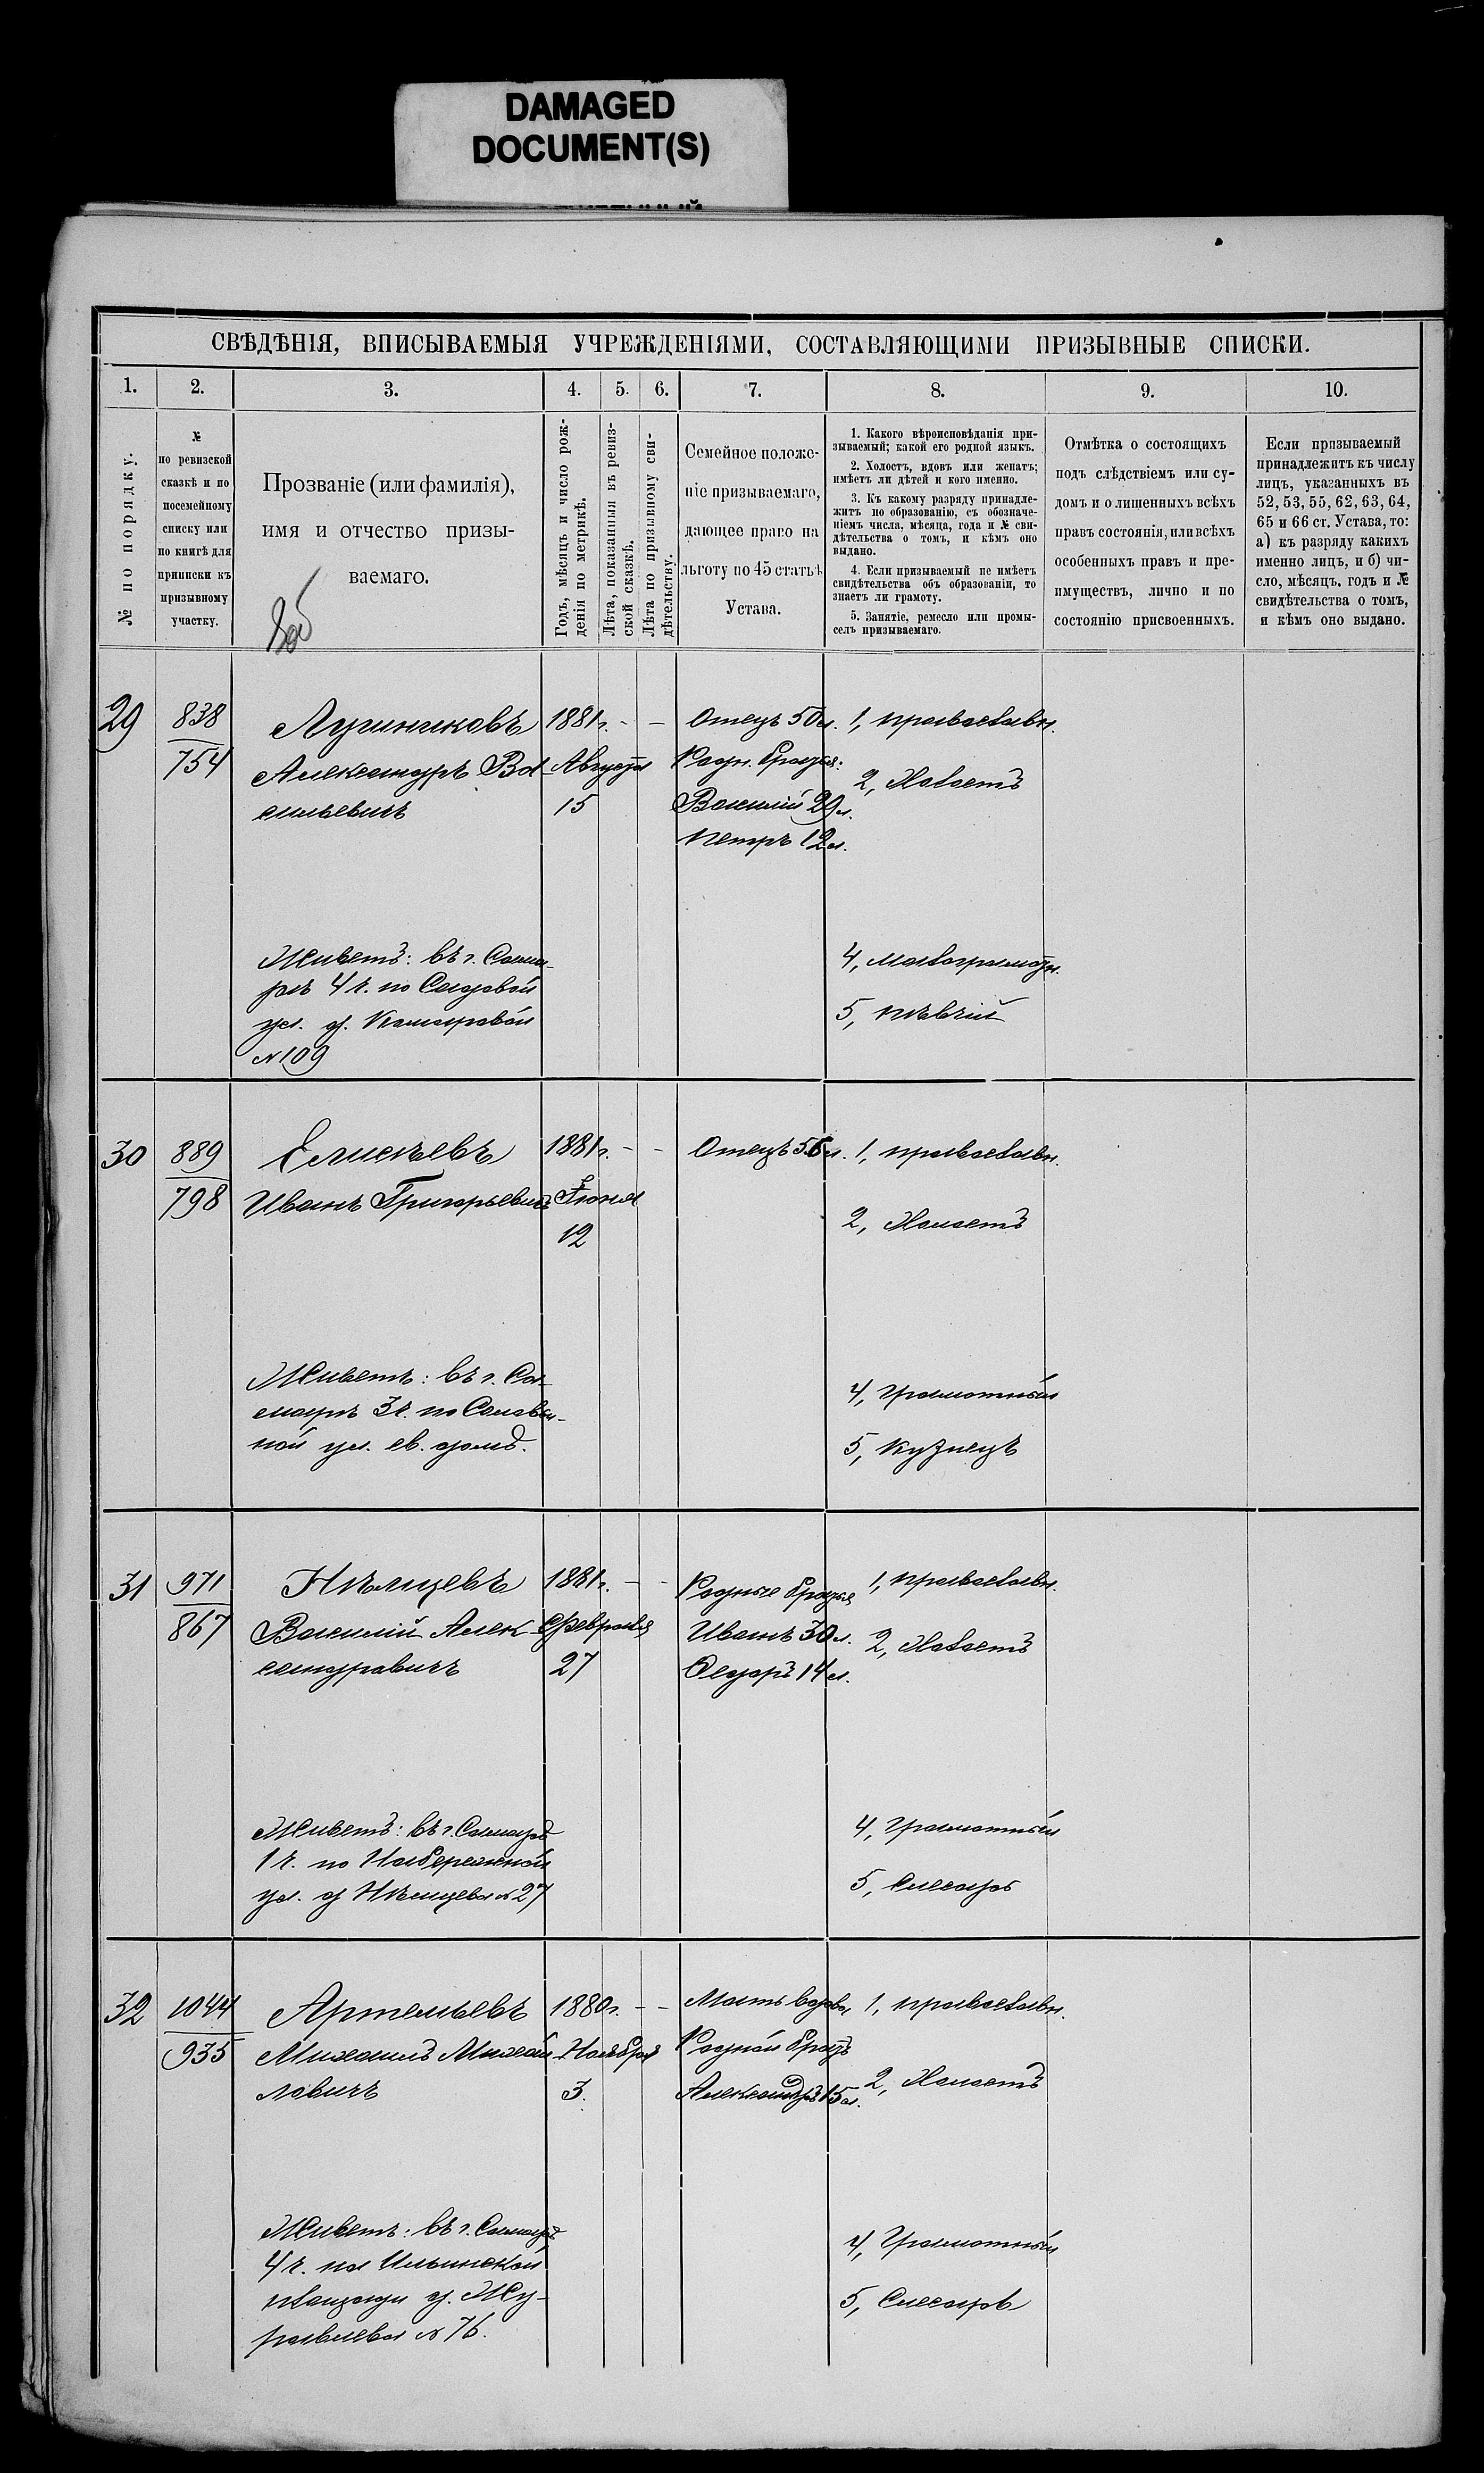 DAMAGED
DOCUMENT(S)
СВѢДѢНІЯ, ВПИСЫВАЕМЫЯ УЧРЕЖДЕНІЯМИ, СОСТАВЛЯЮЩИМИ ПРИЗЫВНЫЕ СПИСКИ.
1. 2. 3. 4. 5. 6. 7. 8. 9. 10.
№ по порядку.
№
по ревизской
сказкѣ и по
посемейному
списку или
по книгѣ для
приписки къ
призывному
участку.
Прозваніе (или фамилія),
имя и отчество призы-
ваемаго.
Годъ, мѣсяцъ и число рож-
денія по метрикѣ.
Лѣта, показанныя въ ревиз-
ской сказкѣ.
Лѣта по призывному сви-
дѣтельству.
Семейное положе-
ніе призываемаго,
дающее право на
льготу по 45 статьѣ
Устава.
1. Какого вѣроисповѣданія при-
зываемый; какой его родной языкъ.
2. Холостъ, вдовъ или женатъ;
имѣетъ ли дѣтей и кого именно.
3. Къ какому разряду принадле-
житъ по образованію, съ обозначе-
ніемъ числа, мѣсяца, года и № сви-
дѣтельства о томъ, и кѣмъ оно
выдано.
4. Если призываемый не имѣетъ
свидѣтельства объ образованіи, то
знаетъ ли грамоту.
5. Занятіе, ремесло или промы-
селъ призываемаго.
Отмѣтка о состоящихъ
подъ слѣдствіемъ или су-
домъ и о лишенныхъ всѣхъ
правъ состоянія, или всѣхъ
особенныхъ правъ и пре-
имуществъ, лично и по
состоянію присвоенныхъ.
Если призываемый
принадлежитъ къ числу
лицъ, указанныхъ въ
52, 53, 55, 62, 63, 64,
65 и 66 ст. Устава, то:
а) къ разряду какихъ
именно лицъ, и б) чи-
сло, мѣсяцъ, годъ и №
свидѣтельства о томъ,
и кѣмъ оно выдано.
29 838 1881г. - - Отецъ 50 л. 1, православн.
754 Александръ Ва- Августа Родн. братья:
сильевичъ 15 Василій 29 л. 2, Холостъ
Петръ 12 л.
Живетъ: въ г. Сама-
рѣ 4 ч. по Садовой
ул. д. Комаровой
№ 109
4, малограмотн.
5, пѣвчій
30 889 Елисѣевъ 1881г. - - Отецъ 56 л. 1, православн.
798 Иванъ Григорьевичъ Іюня
12 2, Холостъ
Живетъ: въ г. Са-
марѣ 3 ч. по
ной ул. св. домъ.
4, Грамотный
5, Кузнецъ
31 971 Нѣмцевъ 1881г. - - Родные братья 1, православн.
867 Василій Алек- Февраля Иванъ 30 л. 2, Холостъ
сандровичъ 27 Ѳедоръ 14 л.
Живетъ: въ г. Самарѣ
1 ч. по Набережной
ул. д Нѣмцева № 27
4, Грамотный
5, Слесарь
32 1044 Артемьевъ 1880г. - - Мать вдова 1, православн.
935 Михаилъ Михай- Ноября Родной братъ
ловичъ 3. Александръ 15 л. 2, Холостъ
Живетъ: въ г. Самарѣ
4 ч. на Ильинской
площади д. Жу-
равлева № 76.
4, Грамотный
5, Слесарь